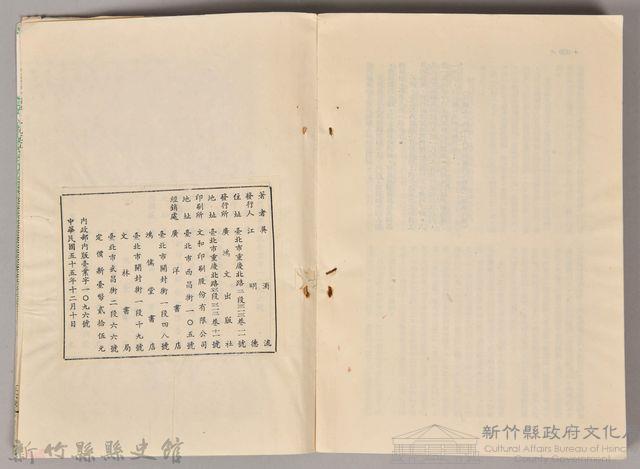 著者 吳濁流
發行人 江明德
住址 臺北市重慶北路三段三三巷二號
發行所 廣鴻文出版社
地址 臺北市重慶北路三段三三巷十二號
印刷所 文和印刷股份有限公司
地址 臺北市西昌街一〇五號
經銷處 廣洋書店
臺北市開封街一段四八號
鴻儒堂書店
臺北市開封街一段十九號
文林書局
臺北市武昌街二段六六號
定價新臺幣貳拾伍元
內政部內版臺業字一〇九六號
中華民國五十五年十二月十日
新竹縣縣史館
新竹縣政府文化
Cultural Affairs Bureau of Hsinc
County Government